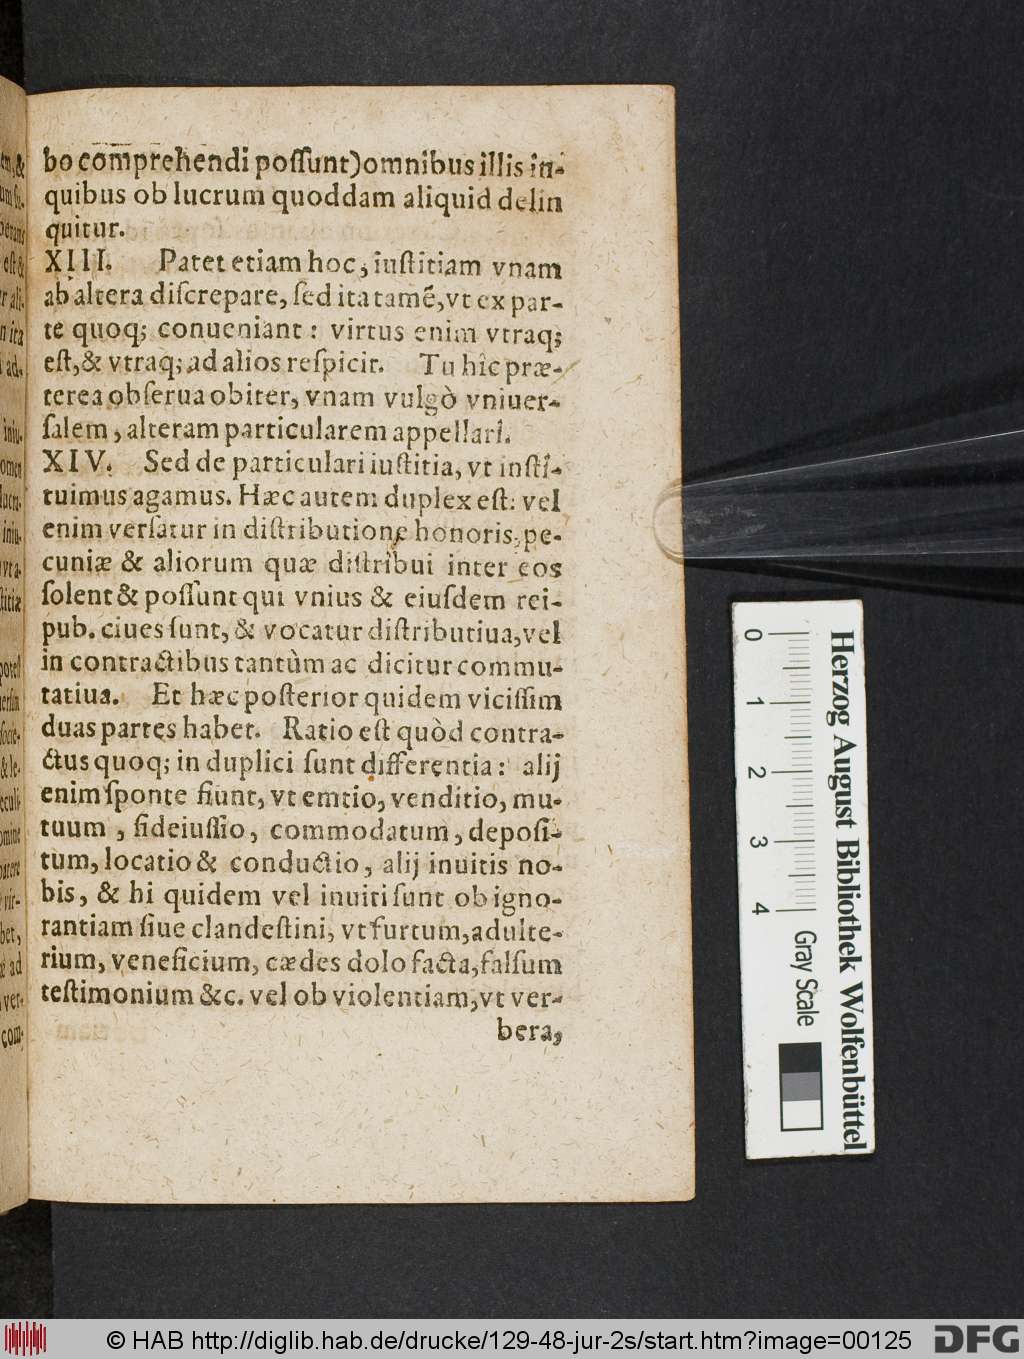 bo comprehendi poſſunt) omnibus illis in-
quibus ob lucrum quoddam aliquid delin
quitur.
XIII. Patet etiam hoc, iuſtitiam vnam
ab altera diſcrepare, ſed ita tamē, vt ex par-
te quoq; conueniant : virtus enim vtraq;
eſt, & vtraq; ad alios reſpicit. Tu hîc præ-
terea obſerua obiter, vnam vulgò vniuer-
ſalem, alteram particularem appellari.
XIV. Sed de particulari iuſtitia, vt inſti-
tuimus agamus. Hæc autem duplex eſt: vel
enim verſatur in diſtributione honoris, pe-
cuniæ & aliorum quæ diſtribui inter eos
ſolent & poſſunt qui vnius & eiuſdem rei-
pub. ciues ſunt, & vocatur diſtributiua, vel
in contractibus tantùm ac dicitur commu-
tatiua. Et hæc poſterior quidem viciſſim
duas partes habet. Ratio eſt quòd contra-
ctus quoq; in duplici ſunt differentia: alij
enim ſponte fiunt, vt emtio, venditio, mu-
tuum, fideiuſſio, commodatum, depoſi-
tum, locatio & conductio, alij inuitis no-
bis, & hi quidem vel inuiti ſunt ob igno-
rantiam ſiue clandeſtini, vt furtum, adulte-
rium, veneficium, cædes dolo facta, falſum
teſtimonium &c. vel ob violentiam, vt ver-
bera,
0 1 2 3 4 Gray Scale
Herzog August Bibliothek Wolfenbüttel
© HAB http://diglib.hab.de/drucke/129-48-jur-2s/start.htm?image=00125
DFG